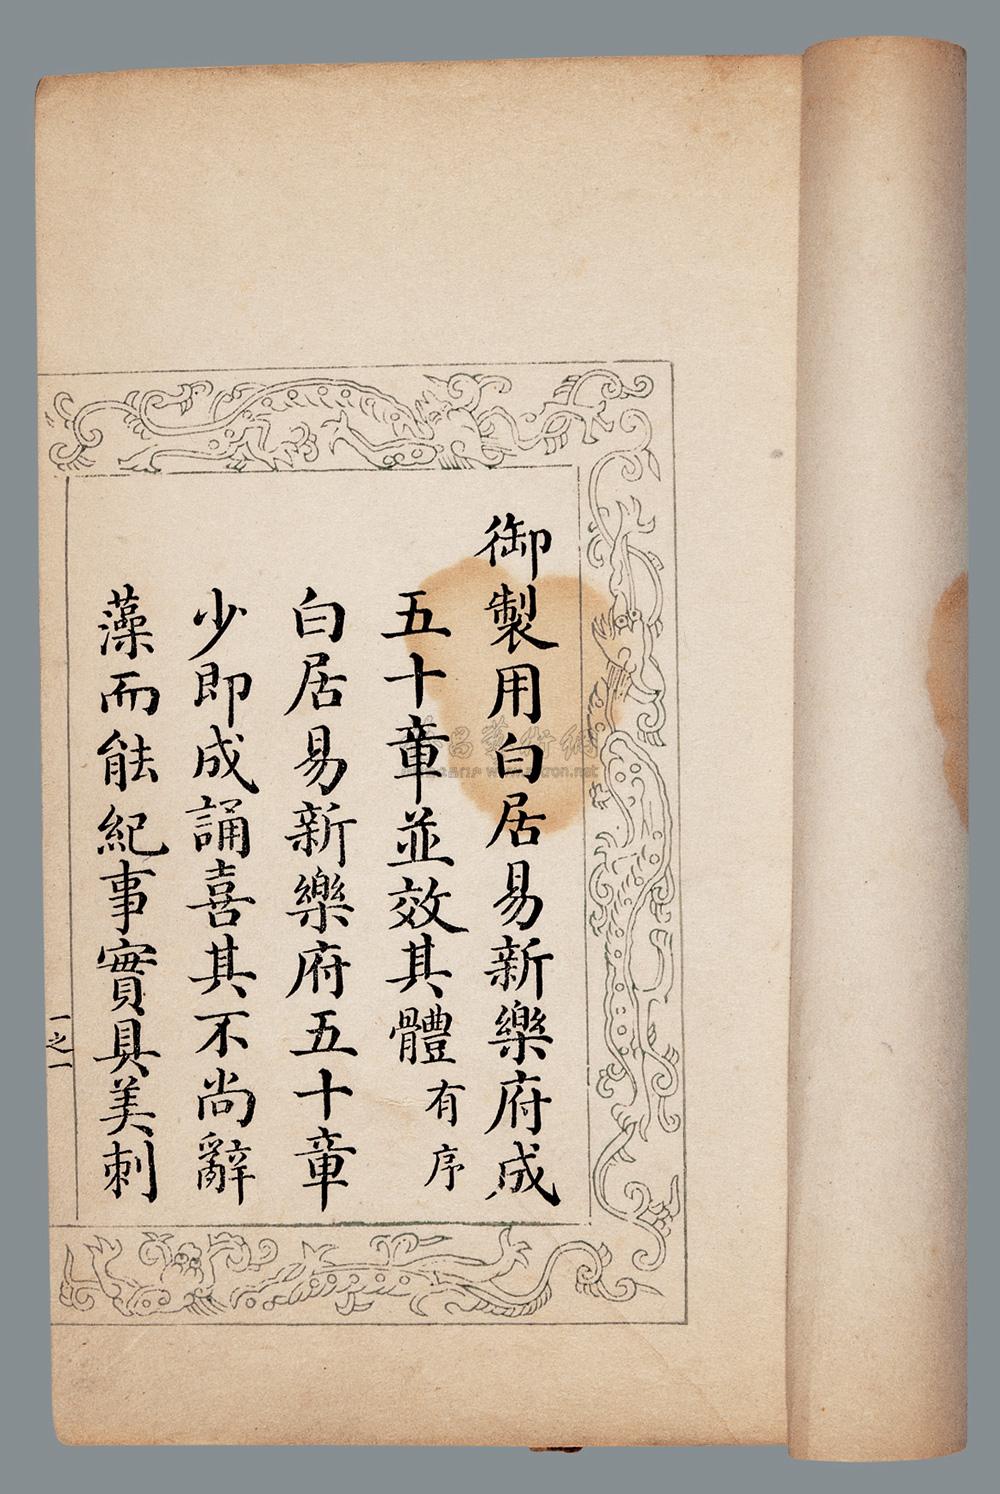 御製用白居易新樂府成
五十章並效其體有序
白居易新樂府五十章
少即成誦喜其不尚辭
藻而能紀事實具美刺
一之一